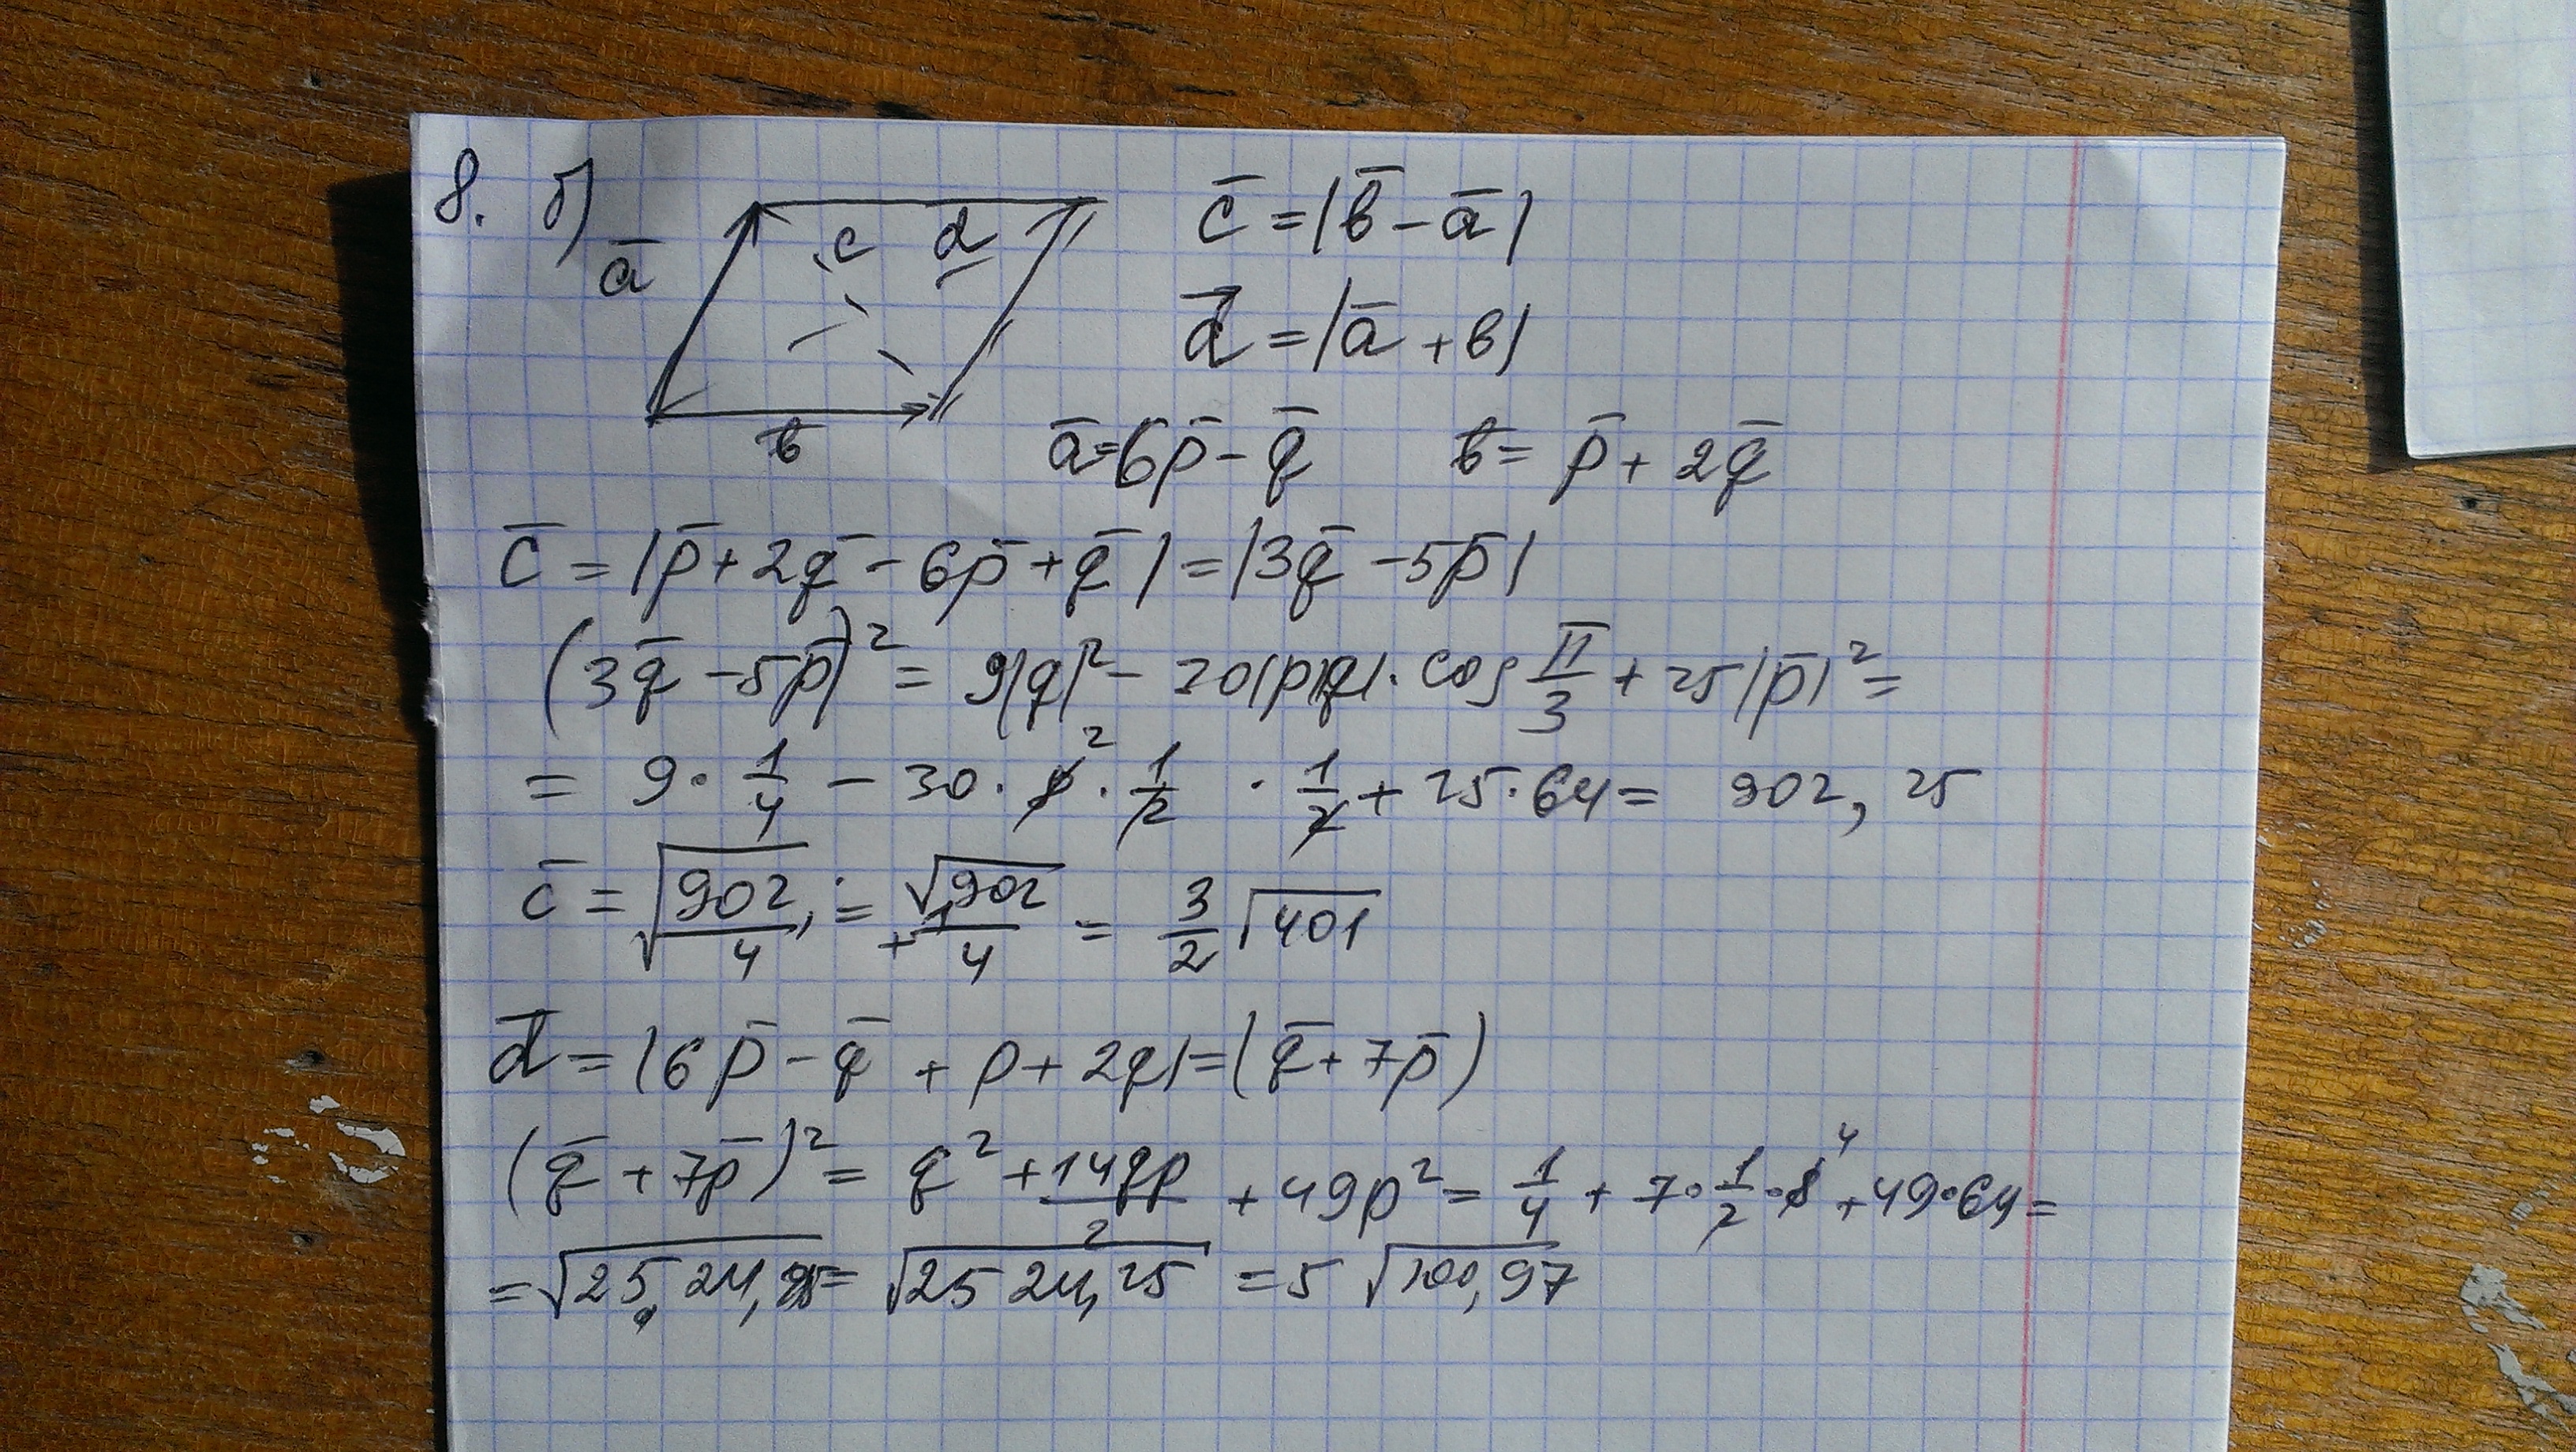 8. б)
a̅ c d
c̅ = |b̅ - a̅|
d⃗ = |a̅ + b|
b̅
a̅ = 6p̅ - q̅ b̅ = p̅ + 2q̅
c̅ = |p̅ + 2q̅ - 6p̅ + q̅| = |3q̅ - 5p̅|
(3q̅ - 5p̅)² = 9|q|² - 30|p||q| · cos π/3 + 25|p̅|² =
= 9 · 1/4 - 30 · 8̸ ² · 1/2̸ · 1/2̸ + 25 · 64 = 902, 25
c̅ = √(902/4), = √902/4 + 1 = 3/2 √401
d̅ = |6p̅ - q̅ + p + 2q| = (q̅ + 7p̅)
(q̅ + 7p̅)² = q² + 14qp/2 + 49p² = 1/4 + 7 · 1/2̸ · 8̸ ⁴ + 49 · 64 =
= √25 24, 25 = √25 24, 25 = 5 √100,97